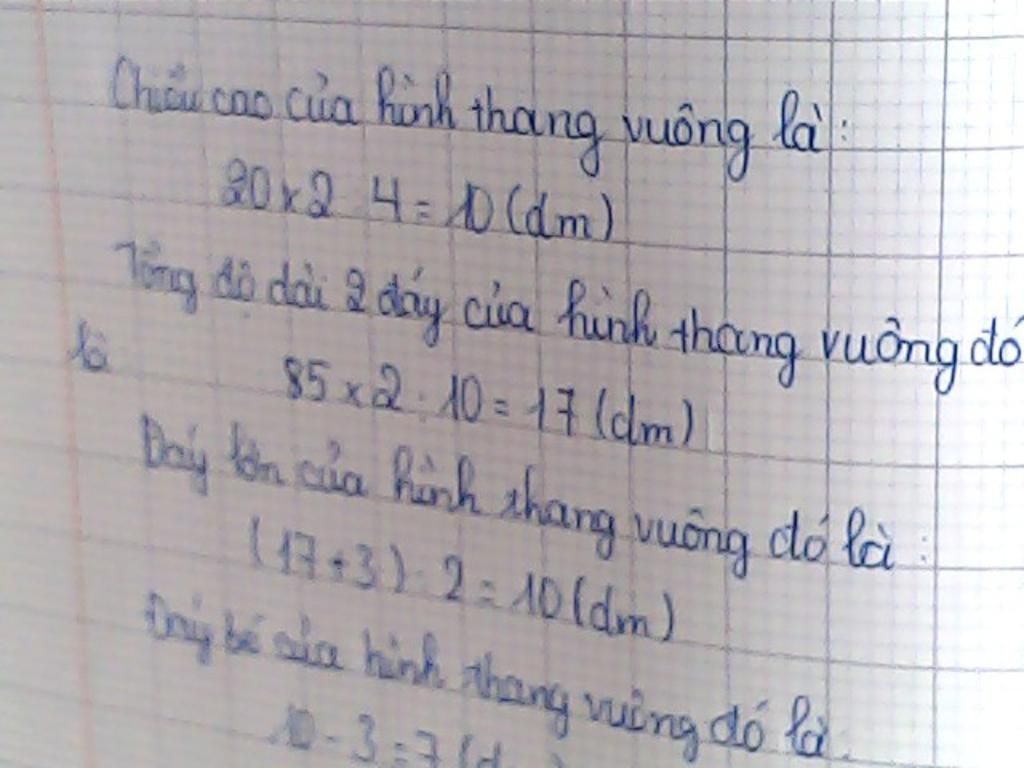 Chiều cao của hình thang vuông là:
20 x 2 : 4 = 10 (dm)
Tổng độ dài 2 đáy của hình thang vuông đó
là
85 x 2 : 10 = 17 (dm)
Đáy lớn của hình thang vuông đó là :
(17 + 3) : 2 = 10 (dm)
Đáy bé của hình thang vuông đó là :
10 - 3 = 7 (d